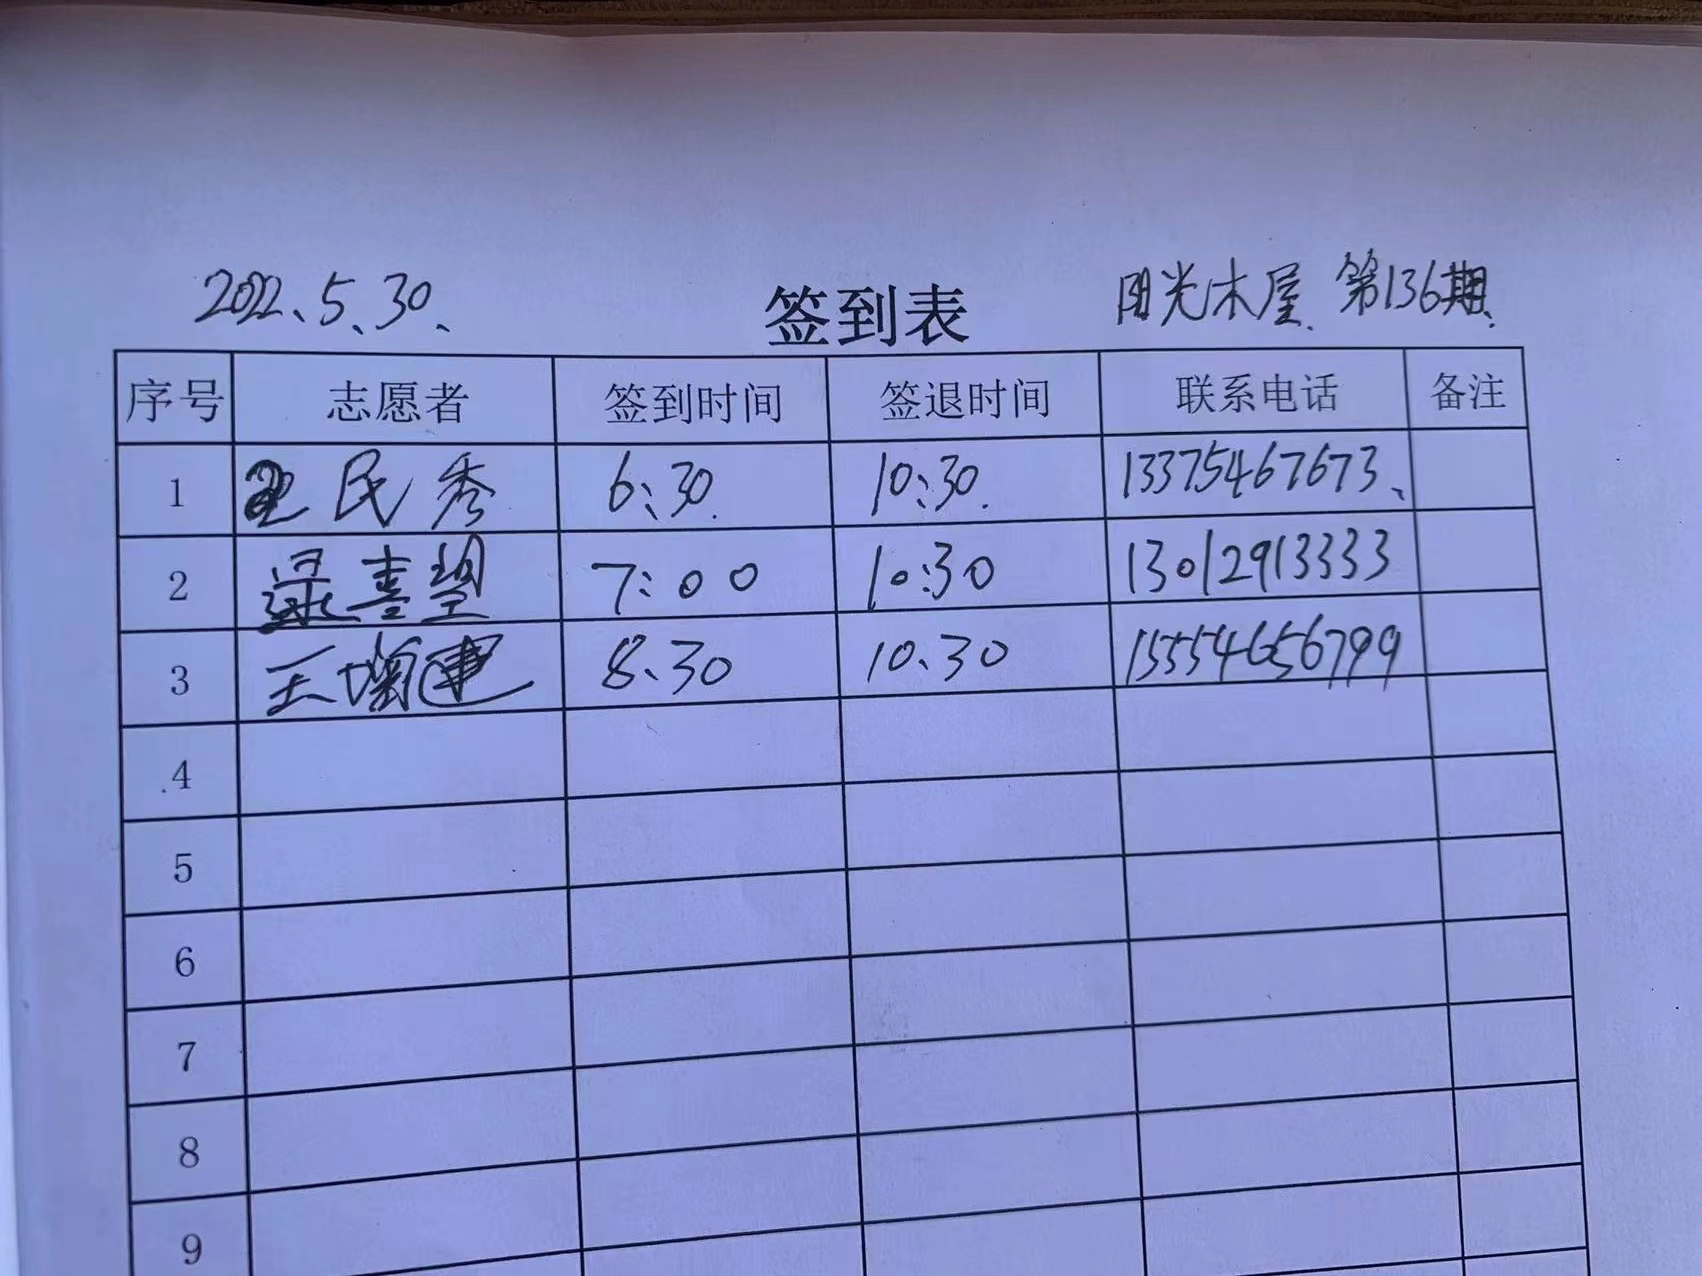 2022、5、30、
签到表
阳光木屋、第136期、
序号 志愿者 签到时间 签退时间 联系电话 备注
1 王民秀 6:30. 10:30. 13375467673、
2 喜望 7:00 10:30 13012913333
3 王增建 8、30 10、30 15554656799
4
5
6
7
8
9